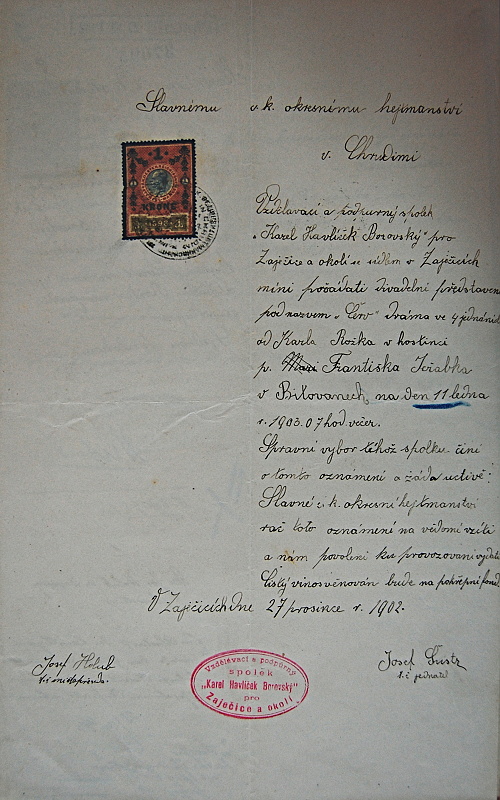 Slavnému c.k. okresnímu hejtmanství
v. Chrudimi
1
KRONE
1898
Vzdělavací a podpurný spolek
„Karel Havlíček Borovský" pro
Zaječice a okolí se sídlem v Zaječicích
míní pořádati divadelní představení
pod nazvem „Červ" dráma ve 4 jednáních
od Karla Rožka v hostinci
p. Františka Jeřabka
v Bítovanech, na den 11 ledna
r. 1903. o 7 hod. večer.
Spravní vybor téhož spolku činí
o tomto oznámení a žádá uctivě:
Slavné c. k. okresní hejtmanství
rač toto oznámení na vědomí vzíti
a nám povolení ku provozovaní vydati
Čistý vínos věnován bude na pohřební fond.
V Zaječicích dne 27 prosince r. 1902.
Josef Holub
Josef Šustr
t. č. jednatel
Vzdělávací a podpůrný
spolek
„Karel Havlíček Borovský"
pro
Zaječice a okolí